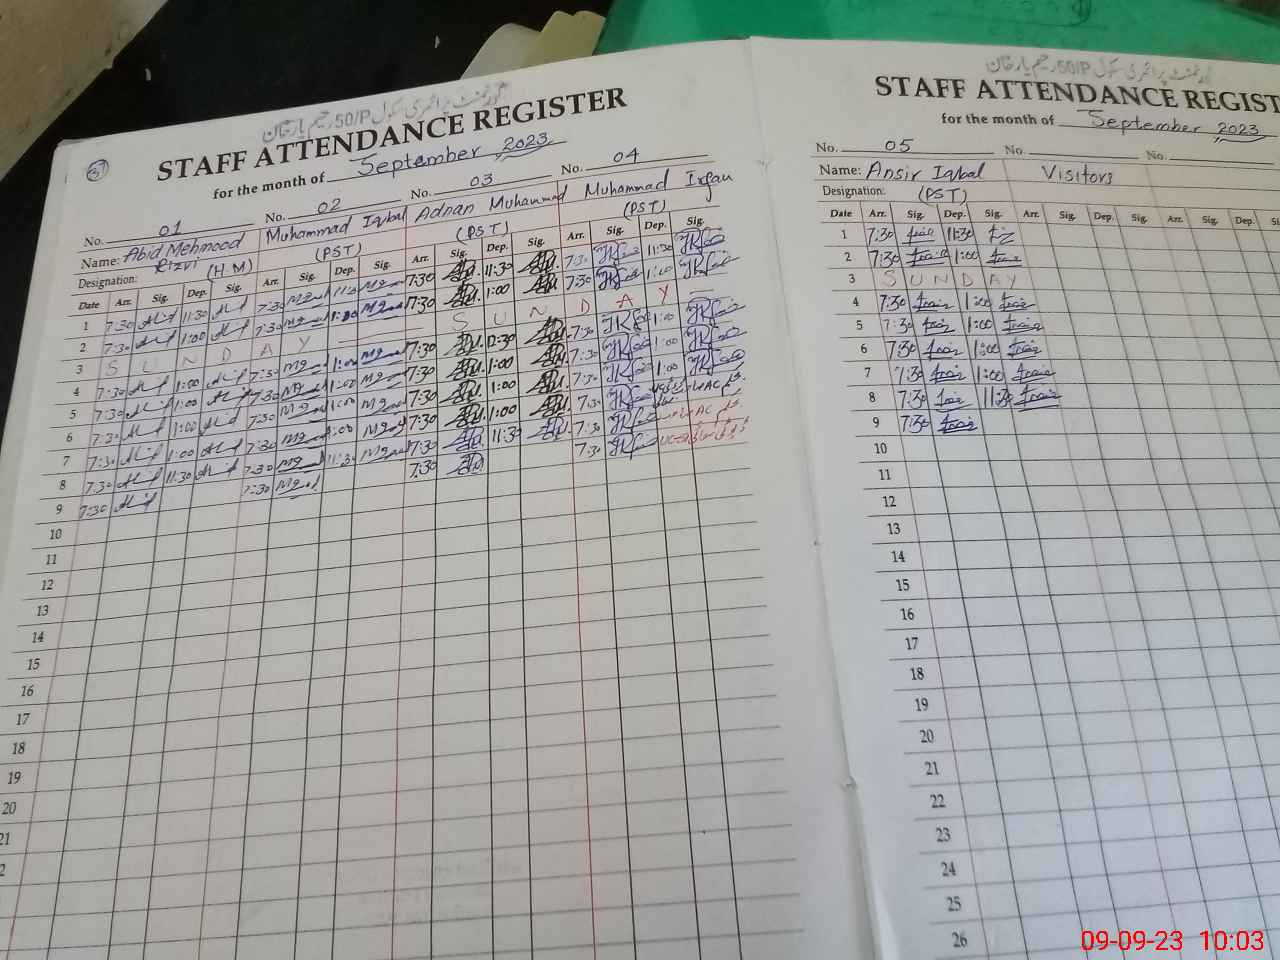 گورنمنٹ پرائمری سکول 50/P رحیم یار خان
37
STAFF ATTENDANCE REGISTER
for the month of September 2023
No. 01 No. 02 No. 03 No. 04
Name: Abid Mehmood Rizvi Muhammad Iqbal Adnan Muhammad Muhammad Irfan
Designation: (H.M) (PST) (PST) (PST)
Date Arr. Sig. Dep. Sig. Arr. Sig. Dep. Sig. Arr. Sig. Dep. Sig. Arr. Sig. Dep. Sig.
1 7:30 11:30 7:30 11:30 7:30 11:30 7:30 11:30
2 7:30 1:00 7:30 1:00 7:30 1:00 7:30 1:00
3 S U N D A Y S U N D A Y
4 7:30 1:00 7:30 1:00 7:30 12:30 7:30 1:00
5 7:30 1:00 7:30 1:00 7:30 1:00 7:30 1:00
6 7:30 1:00 7:30 1:00 7:30 1:00 7:30 1:00
7 7:30 1:00 7:30 1:00 7:30 1:00 7:30
8 7:30 11:30 7:30 11:30 7:30 11:30 7:30
9 7:30 7:30 7:30 7:30
10
11
12
13
14
15
16
17
18
19
20
21
2
گورنمنٹ پرائمری سکول 50/P رحیم یار خان
STAFF ATTENDANCE REGIST
for the month of September 2023
No. 05 No. No.
Name: Ansir Iqbal Visitors
Designation: (PST)
Date Arr. Sig. Dep. Sig. Arr. Sig. Dep. Sig. Arr. Sig. Dep. Si
1 7:30 11:30
2 7:30 1:00
3 S U N D A Y
4 7:30 1:00
5 7:30 1:00
6 7:30 1:00
7 7:30 1:00
8 7:30 11:30
9 7:30
10
11
12
13
14
15
16
17
18
19
20
21
22
23
24
25
26
09-09-23 10:03